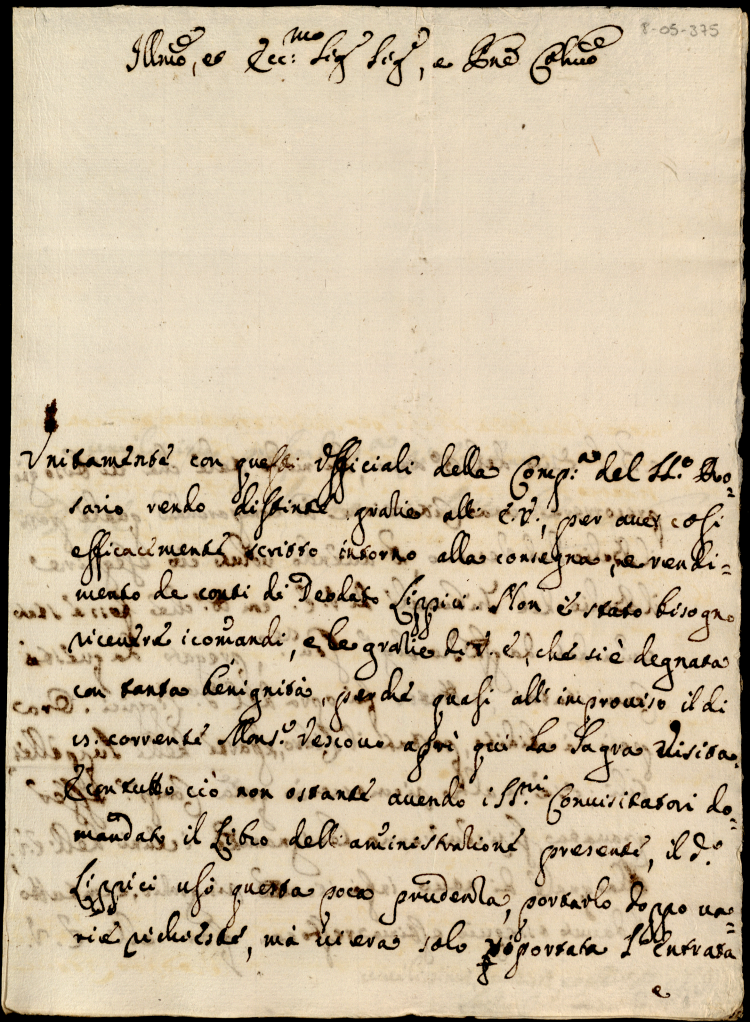 8-05-375
Illmo, et Ecc:mo Sigr Sigr, e Pne Colmo
Unitamente con questi Officiali della Comp:a del SS.o Ro=
sario rendo distinte grazie all' E.V., per aver così
efficacemente scritto intorno alla consegna, e rendi=
mento de conti di Deodato Lippici. Non è stato bisogno
ricevere i comandi, e le grazie di V.E., che si è degnata
con tanta benignità, perche quasi all' improviso il di
corrente Mons.r Vescovo aprì qui la Sagra Visita.
E con tutto ciò non ostante avendo i SS.ri Convisitatori do=
mandato il Libro dell' aministrazione presente, il d.o
Lippici usò questa poca prudenza, portarlo doppo va=
rie richieste, mà vi era solo riportata l'Entrata
e